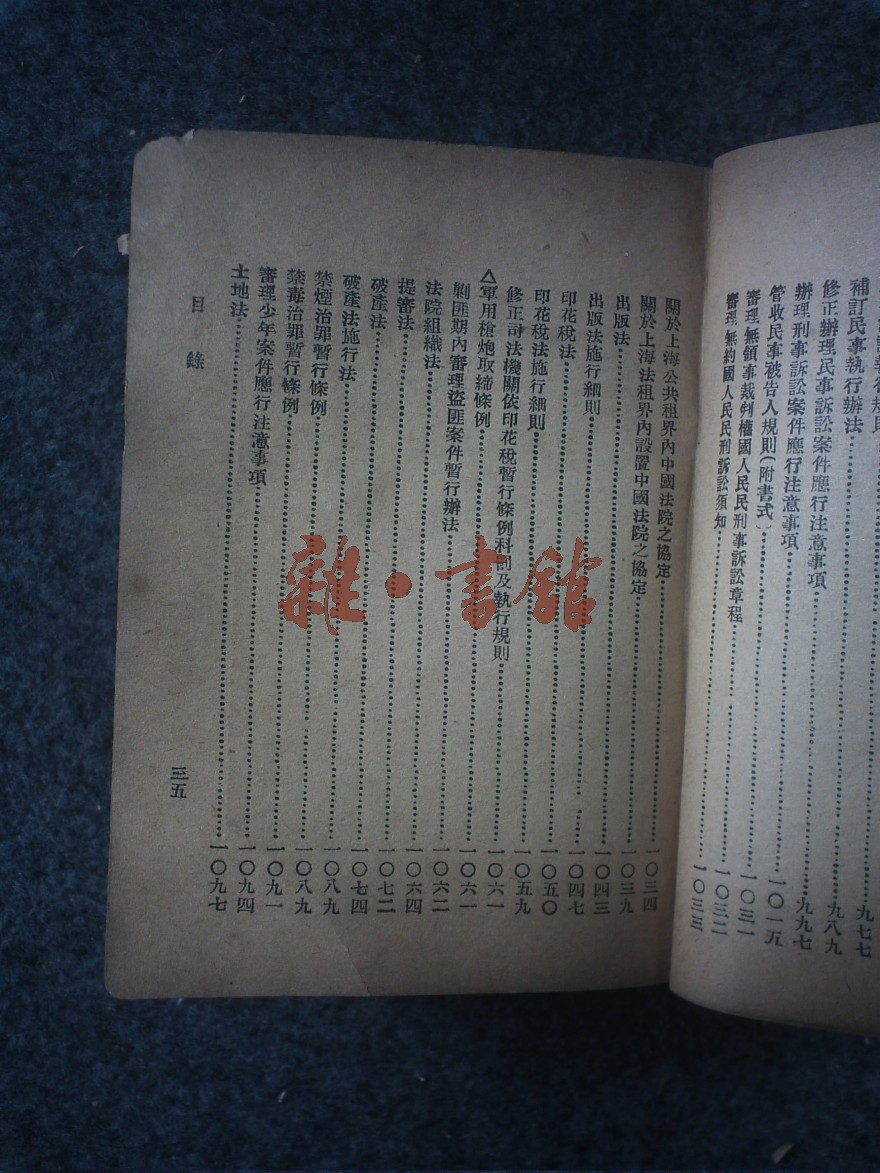 執行規則……九七七
補訂民事執行辦法……九八九
修正辦理民事訴訟案件應行注意事項……九九七
辦理刑事訴訟案件應行注意事項……一〇一五
管收民事被告人規則(附書式)……一〇三一
審理無領事裁判權國人民民刑事訴訟章程……一〇三二
審理無約國人民民刑訴訟須知……一〇三三
關於上海公共租界內中國法院之協定……一〇三四
關於上海法租界內設置中國法院之協定……一〇三九
出版法……一〇四三
出版法施行細則……一〇四七
印花稅法……一〇五〇
印花稅法施行細則……一〇五九
修正司法機關依印花稅暫行條例科罰及執行規則……一〇六一
△軍用槍炮取締條例……一〇六一
剿匪期內審理盜匪案件暫行辦法……一〇六二
法院組織法……一〇六四
提審法……一〇七二
破產法……一〇七四
破產法施行法……一〇八九
禁煙治罪暫行條例……一〇八九
禁毒治罪暫行條例……一〇九一
審理少年案件應行注意事項……一〇九四
土地法……一〇九七
目錄
三五
雜·書館